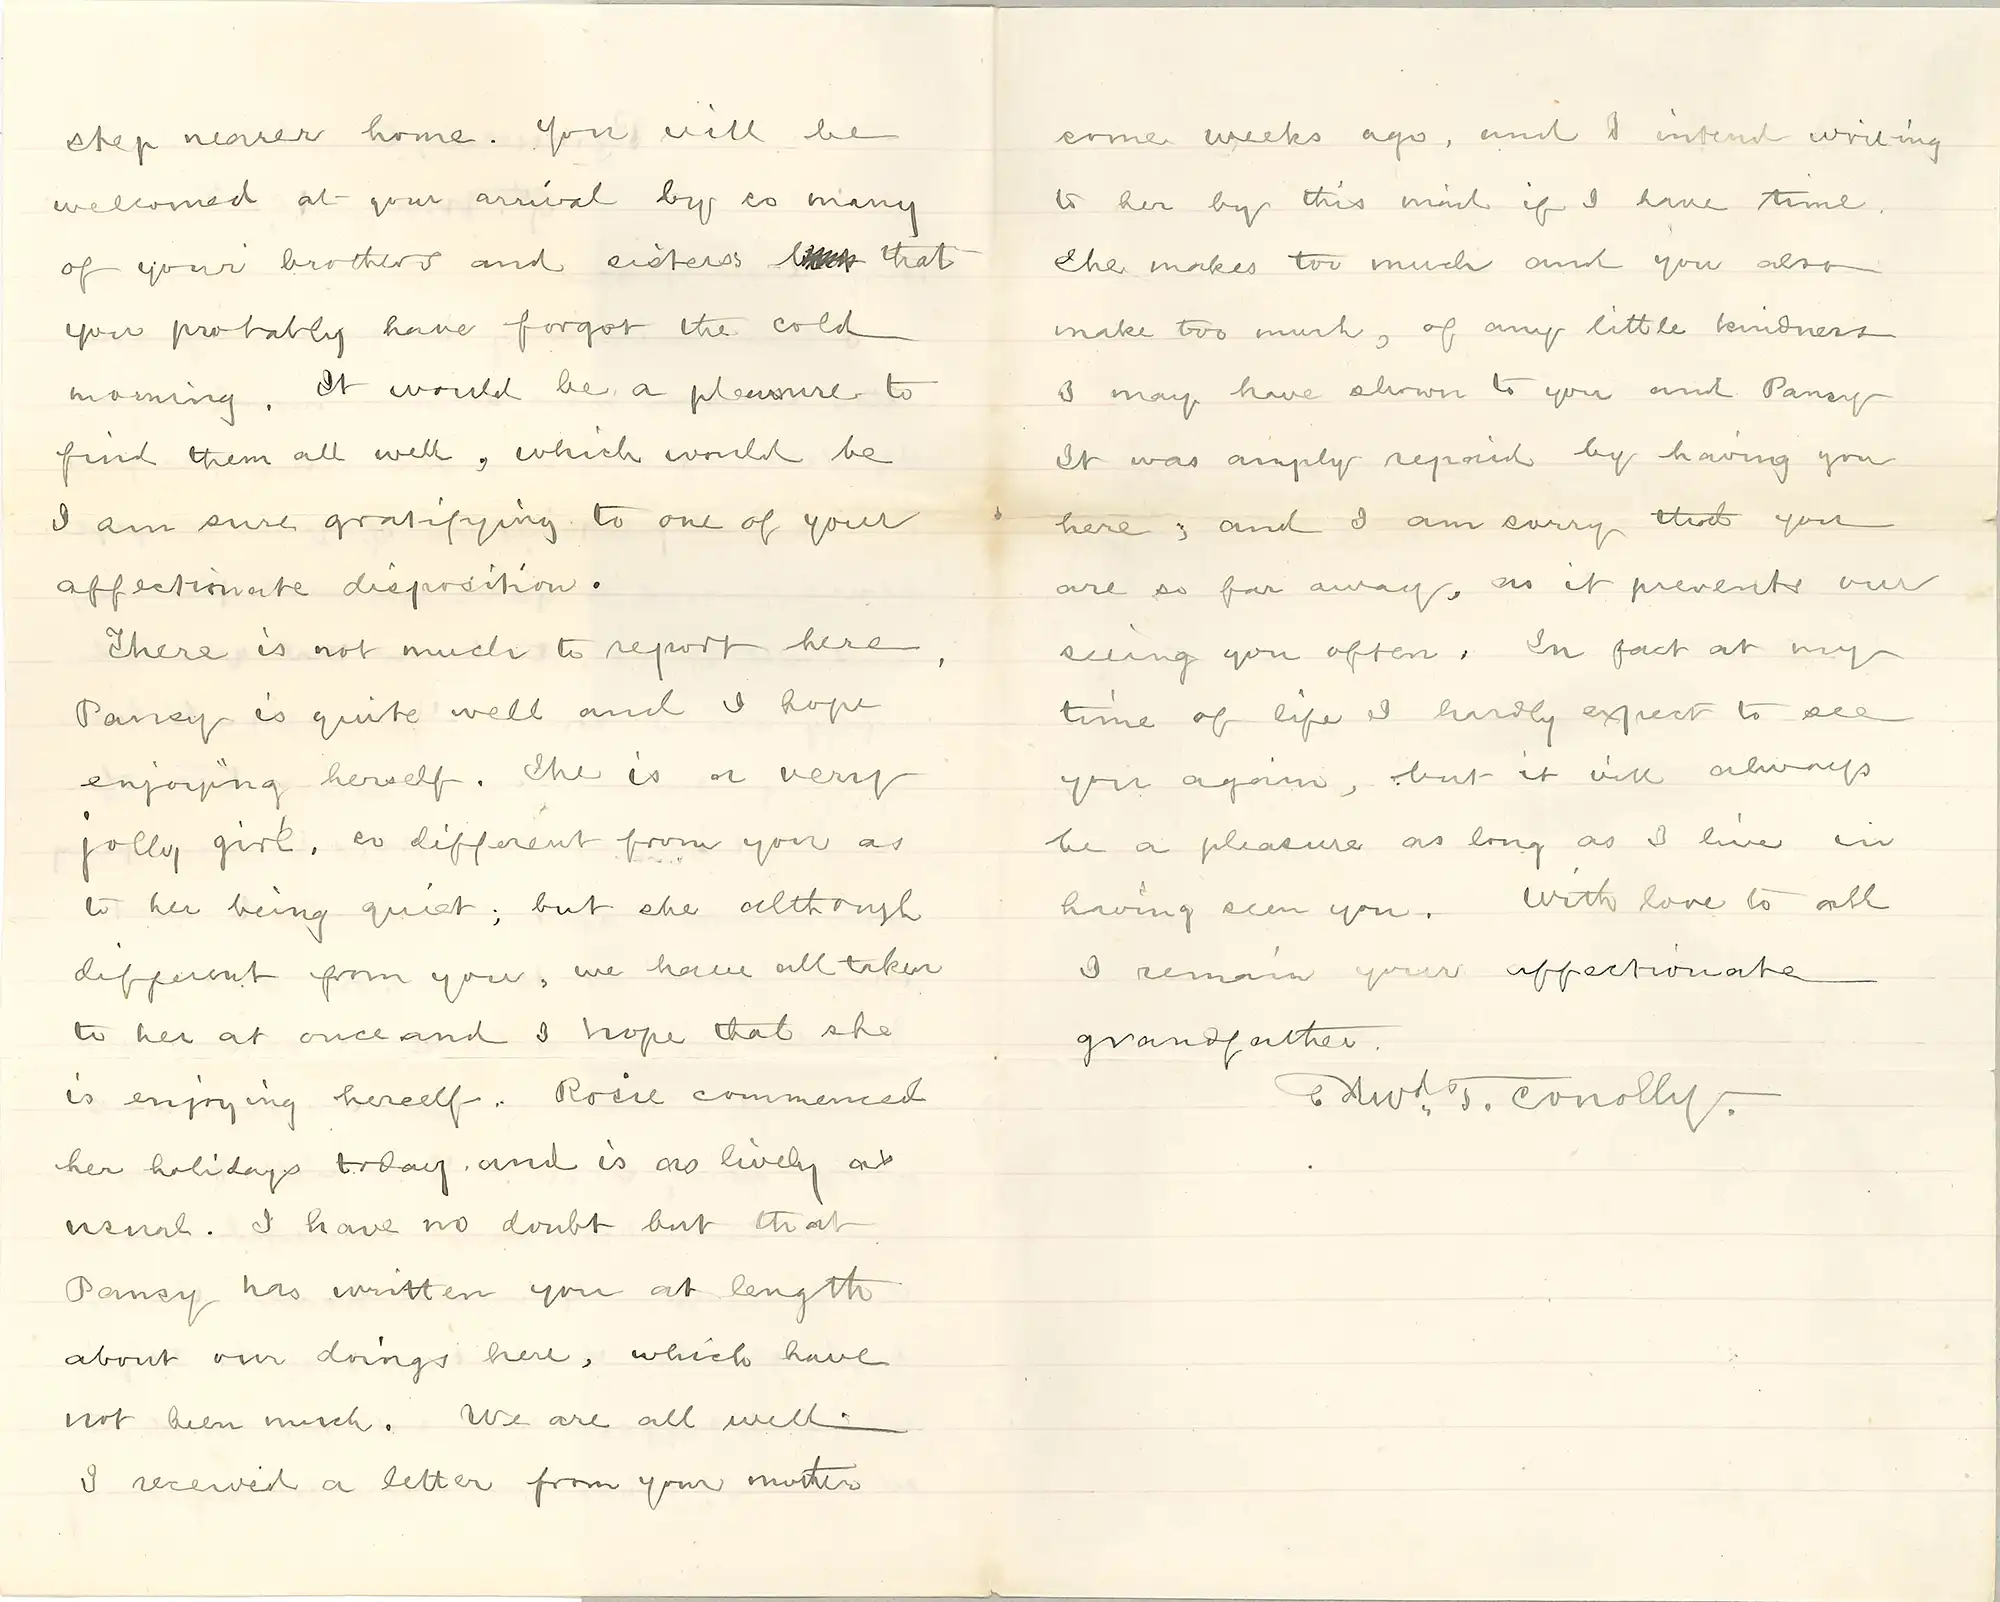 step nearer home. You will be
welcomed at your arrival by so many
of your brothers and sisters that
you probably have forgot the cold
morning. It would be a pleasure to
find them all well, which would be
I am sure gratifying to one of your
affectionate disposition.
There is not much to report here,
Pansy is quite well and I hope
enjoying herself. She is a very
jolly girl, so different from you as
to her being quiet; but she although
different from you, we have all taken
to her at once and I hope that she
is enjoying herself. Rosie commenced
her holidays today and is as lively as
usual. I have no doubt but that
Pansy has written you at length
about our doings here, which have
not been much. We are all well.
I received a letter from your mother
some weeks ago, and I intend writing
to her by this mail if I have time.
She makes too much and you also
make too much, of any little kindness
I may have shown to you and Pansy
It was amply repaid by having you
here; and I am sorry that you
are so far away, as it prevents our
seeing you often. In fact at my
time of life I hardly expect to see
you again, but it will always
be a pleasure as long as I live in
having seen you. With love to all
I remain your affectionate
grandfather.
Edwd. T. Conolly.